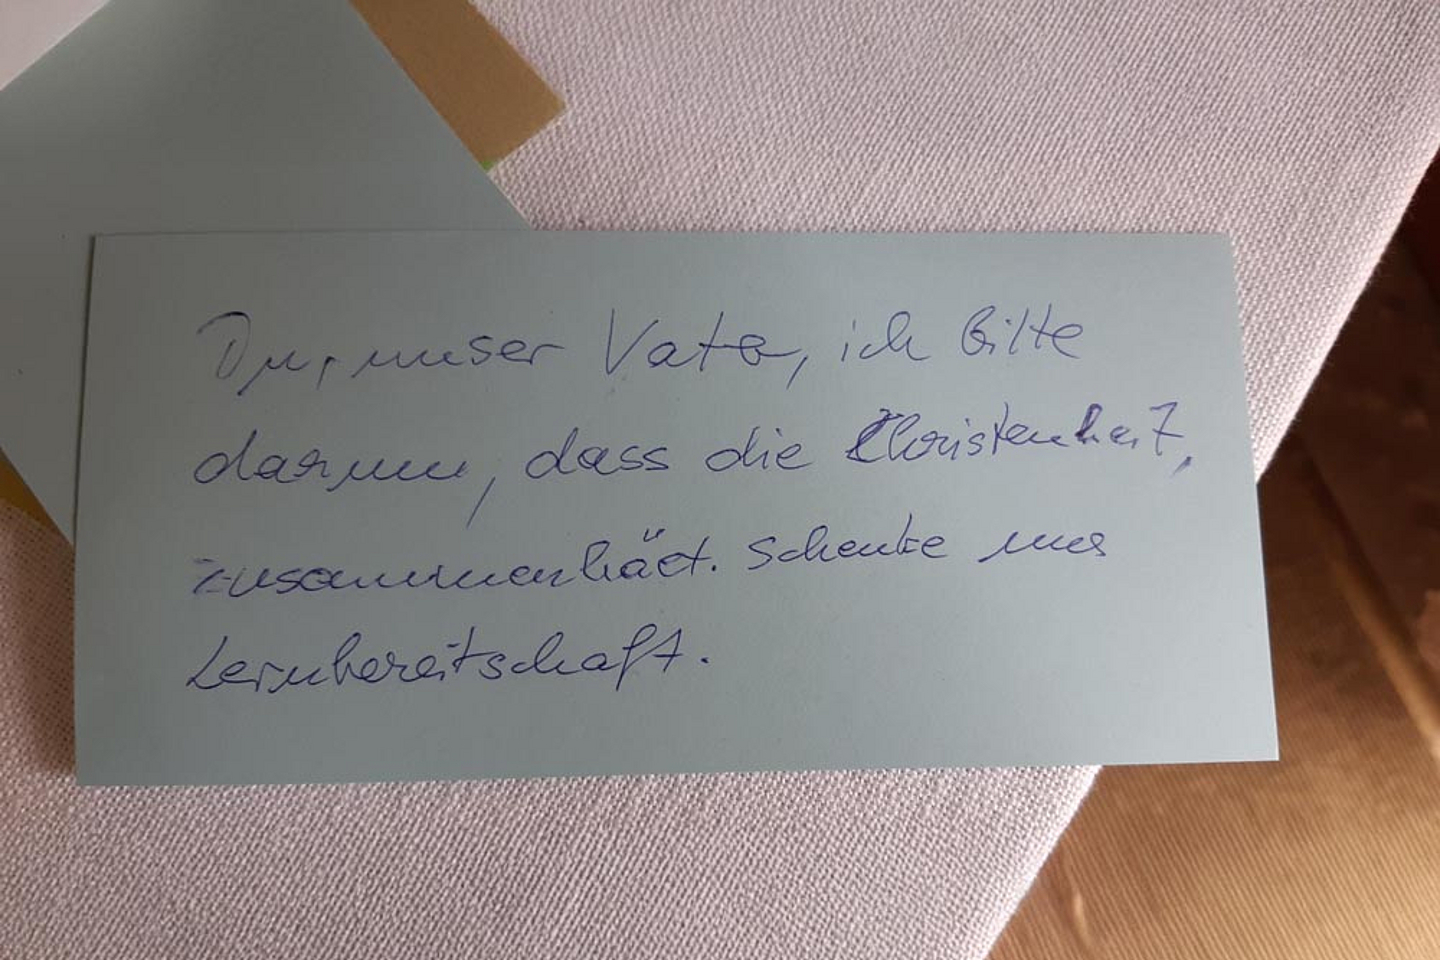 Du, unser Vater, ich bitte
darum, dass die Christenheit,
zusammenhält. Schenke uns
Lernbereitschaft.